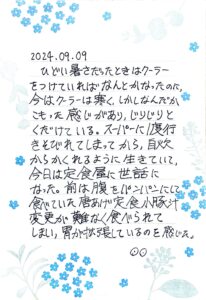 2024.09.09
ひどい暑さだったときはクーラー
をつけていればなんとかなったのに,
今はクーラーは寒く,しかしなんだか
こもった感じがあり,じりじりと
くだけている。スーパーに1度行
きそびれてしまってから,目次
からかくれるように生きていて,
今日は定食屋に世話に
なった。前は腹をパンパンにして
食べていた唐あげ定食小豚汁
変更が難なく食べられて
しまい,胃が拡張しているのを感じた。